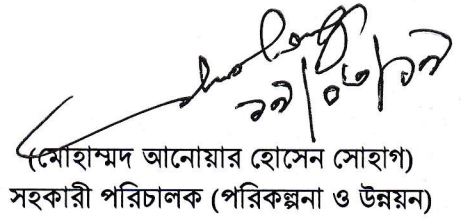 ১৯/০৩/১৯
(মোহাম্মদ আনোয়ার হোসেন সোহাগ)
সহকারী পরিচালক (পরিকল্পনা ও উন্নয়ন)